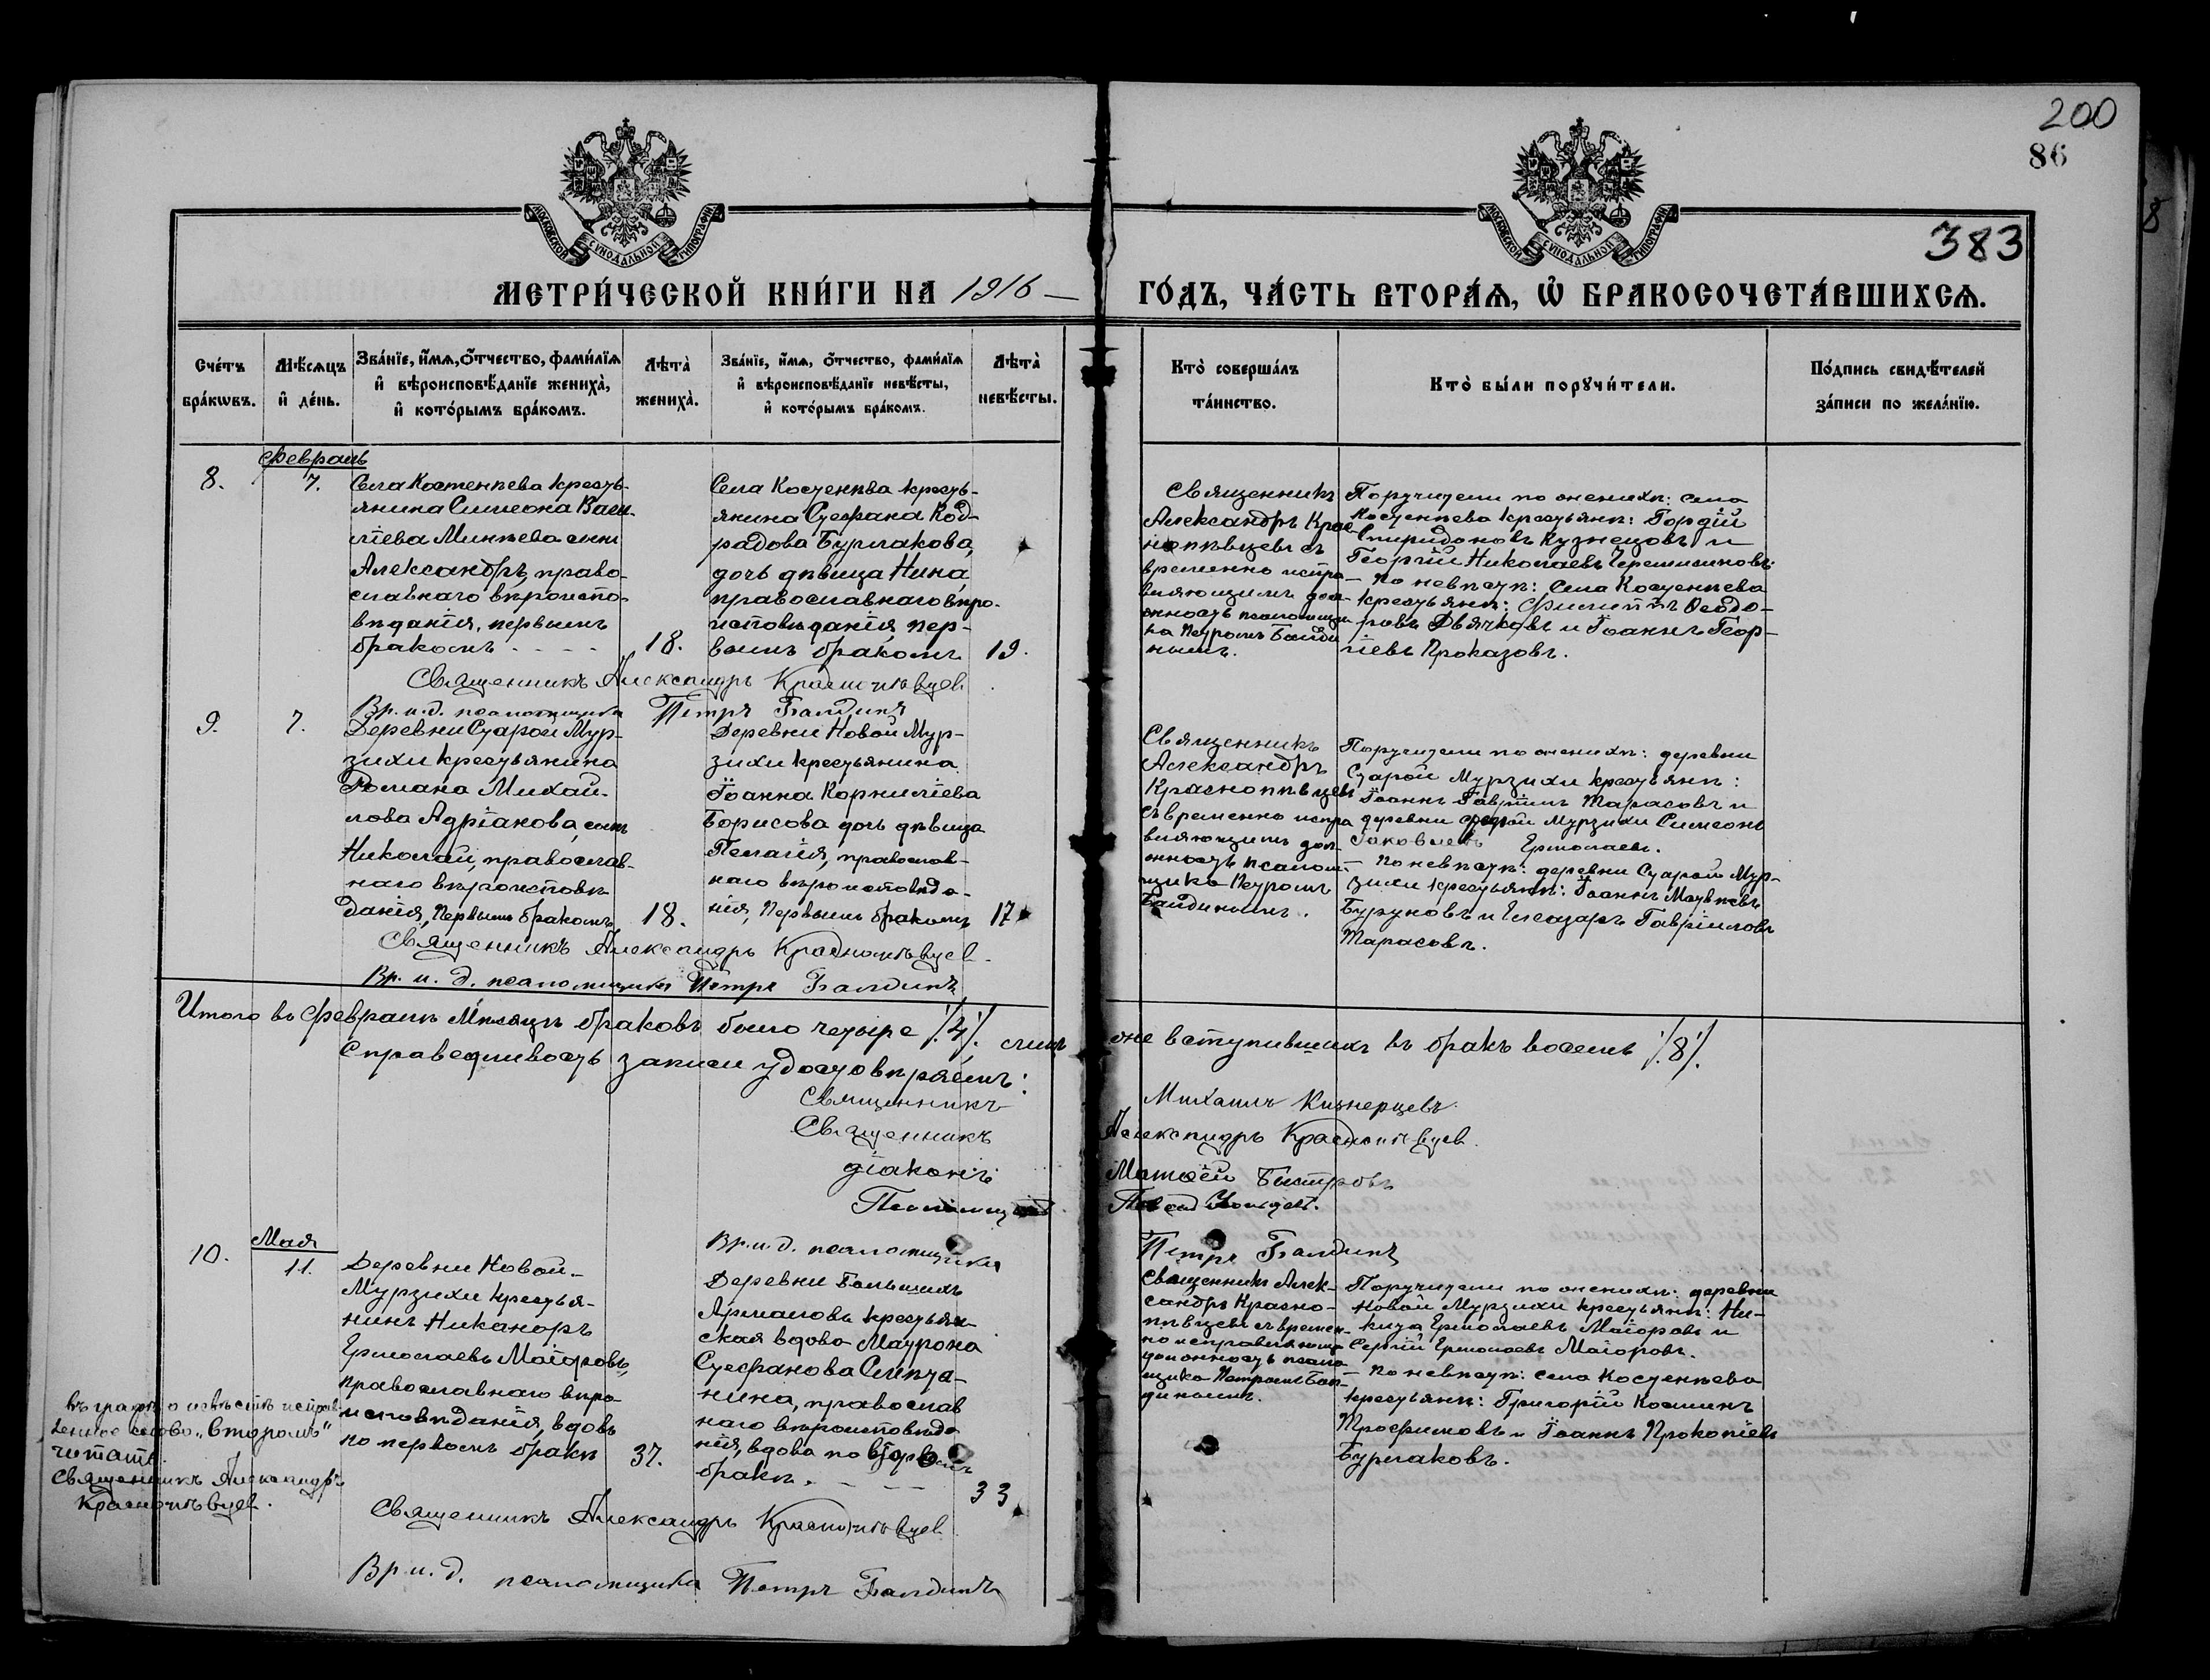 200
86
383
МОСКОВСКОЙ СѴНОДАЛЬНОЙ ТИПОГРАФІИ
МОСКОВСКОЙ СѴНОДАЛЬНОЙ ТИПОГРАФІИ
МЕТРИ́ЧЕСКОЙ КНИ́ГИ НА 1916 —
ГО́ДЪ, ЧА́СТЬ ВТОРА́Ѧ, Ѽ БРАКОСОЧЕТА́ВШИХСѦ.
Сче́тъ бра́кѡвъ.
Мѣ́сѧцъ и҆ де́нь.
Зва́нїе, и҆́мѧ, ѻ҆́тчество, фами́лїѧ
и҆ вѣроисповѣ́данїе жениха̀,
и҆ кото́рымъ бра́комъ.
Лѣ́та̀ жениха̀.
Зва́нїе, и҆́мѧ, ѻ҆́тчество, фами́лїѧ
и҆ вѣроисповѣ́данїе невѣ́сты,
и҆ кото́рымъ бра́комъ.
Лѣ́та̀ невѣ́сты.
Кто̀ соверша́лъ та́инство.
Кто̀ бы́ли порꙋчи́тели.
По́дпись свидѣ́телей
за́писи по жела́нїю.
Февраль
8.
7.
Села Костенѣева кресть-
янина Симеона Васи-
ліева Минѣева сын
Александръ, право-
славнаго вѣроиспо-
вѣданія, первымъ
бракомъ - - - -
18.
Села Костенѣева кресть-
янина Стефана Код-
радова Бурлакова,
дочь дѣвица Нина,
православнаго вѣро-
исповѣданія, пер-
вымъ бракомъ
19.
Священникъ
Александръ Крас-
нопѣвцевъ съ
временно испра-
вляющимъ дол-
жность псаломщи
ка Петромъ Балди
нымъ.
Поручители по женихѣ: села
Костенѣева крестьянѣ: Гордій
Спиридоновъ Кузнецовъ и
Георгій Николаевъ Черемисиновъ:
— По невѣстѣ: села Костенѣева
крестьянѣ: Филиппъ Ѳеодо-
ровъ Дьячковъ и Іоаннъ Геор-
гіевъ Проказовъ.
Священникъ Александръ Краснопѣвцев
Вр. и. д. псаломщика Петръ Балдинъ
9.
7.
Деревни Старой Мур-
зихи крестьянина
Романа Михай-
лова Адріанова, сын
Николай, православ-
наго вѣроисповѣ
данія, Первымъ бракомъ
18.
Деревни Новой Мур-
зихи крестьянина
Іоанна Корниліева
Борисова дочь дѣвица
Пелагія, православ-
наго вѣроисповѣда-
нія, Первымъ бракомъ
17
Священникъ
Александръ
Краснопѣвцевъ
съ временно испра
вляющимъ дол-
жность псалом-
щика Петромъ
Балдинымъ.
Поручители по женихѣ: деревни
Старой Мурзихи крестьянѣ:
Іоаннъ Гавріилъ Тарасовъ и
деревни Старой Мурзихи Симеонъ
Іаковлевъ Ермолаевъ.
— По невѣстѣ: деревни Старой Мур-
зихи крестьянѣ: Іоаннъ Матвѣевъ
Буруновъ и Елеазаръ Гавріиловъ
Тарасовъ.
Священникъ Александръ Краснопѣвцев.
Вр. и. д. псаломщика Петръ Балдинъ
Итого въ Февралѣ Мѣсяцѣ браковъ было четыре ./4/. а ихъ
оне вступившихъ въ бракъ восемь ./8/.
Справедливость записи удостовѣряемъ:
Священникъ
Михаилъ
Священникъ
Александръ Краснопѣвцев
діаконъ:
Матѳей Быстровъ
Псаломщик
Вр. и. д. псаломщика
Петръ Балдинъ
Мая
10.
11.
Деревни Новой-
Мурзихи крестья-
нинъ Никаноръ
Ермолаевъ Маіоровъ,
православнаго вѣро
исповѣданія, вдовъ
по первомъ бракѣ
37.
Деревни Большихъ
Армаловъ крестьян-
ская вдова Матрона
Стефанова Синта-
нина, православ
наго вѣроисповѣда
нія, вдова по второмъ
бракѣ. - - -
33
Священникъ Алек-
сандръ Красно-
пѣвцевъ съ времен-
но исправляющ
должность псало
мщика Петромъ Бал-
динымъ.
Поручители по женихѣ: деревни
Новой Мурзихи крестьянѣ: Ни-
кита Ермолаевъ Маіоровъ и
Сергій Ермолаевъ Маіоровъ.
— По невѣстѣ: села Костенѣева
крестьянѣ: Григорій Косминъ
Трофимовъ и Іоаннъ Прокопіевъ
Бурлаковъ.
въ графѣ о невѣстѣ исправ-
ленное слово „второмъ"
читать.
Священникъ Александръ
Краснопѣвцев.
Священникъ Александръ Краснопѣвцев
Вр. и. д. псаломщика Петръ Балдинъ